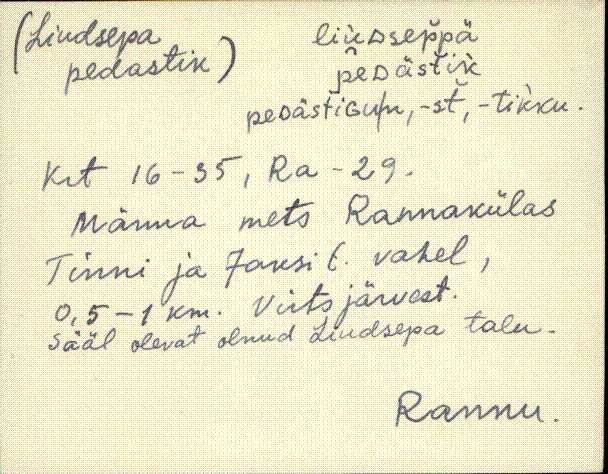 (Liudsepa liuᴅseppä
pedastik) peᴅästik
peᴅästiGun, -st, -tikku.
Krt 16-35, Ra-29.
Männa mets Rannakülas
Tinni ja Jaksi t. vahel,
0,5-1 km. Virtsjärvest.
Sääl olevat olnud Liudsepa talu.
Rannu.